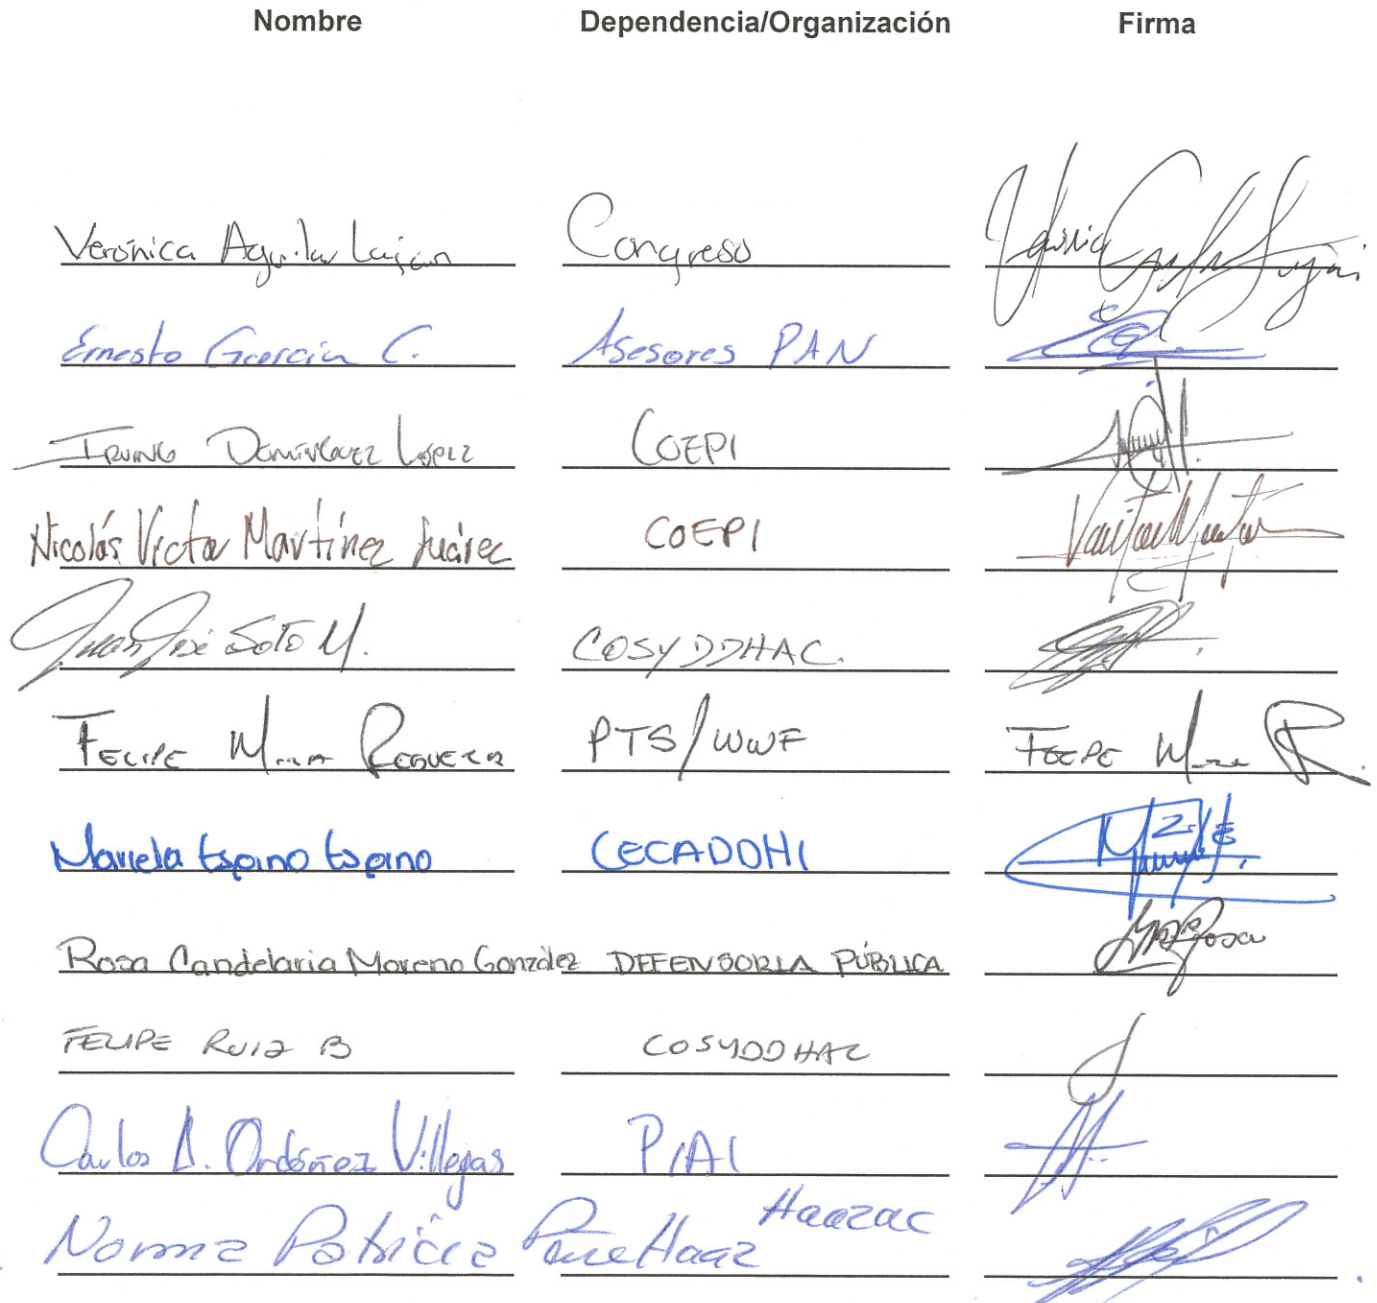 Nombre Dependencia/Organización Firma
Verónica Aguilar Lujan Congreso
Ernesto García C. Asesores PAN
Irving Domínguez López COEPI
Nicolás Victor Martínez Juárez COEPI
Juan José Soto M. COSYDDHAC.
Felipe Mora Reguera PTS/WWF Felipe Mora R.
Mariela Espino Espino CECADDHI
Rosa Candelaria Moreno González DEFENSORIA PÚBLICA Rosa
FELIPE RUIZ B COSYDDHAC
Carlos A. Ordóñez Villegas PIAI
Norma Patricia Haazac